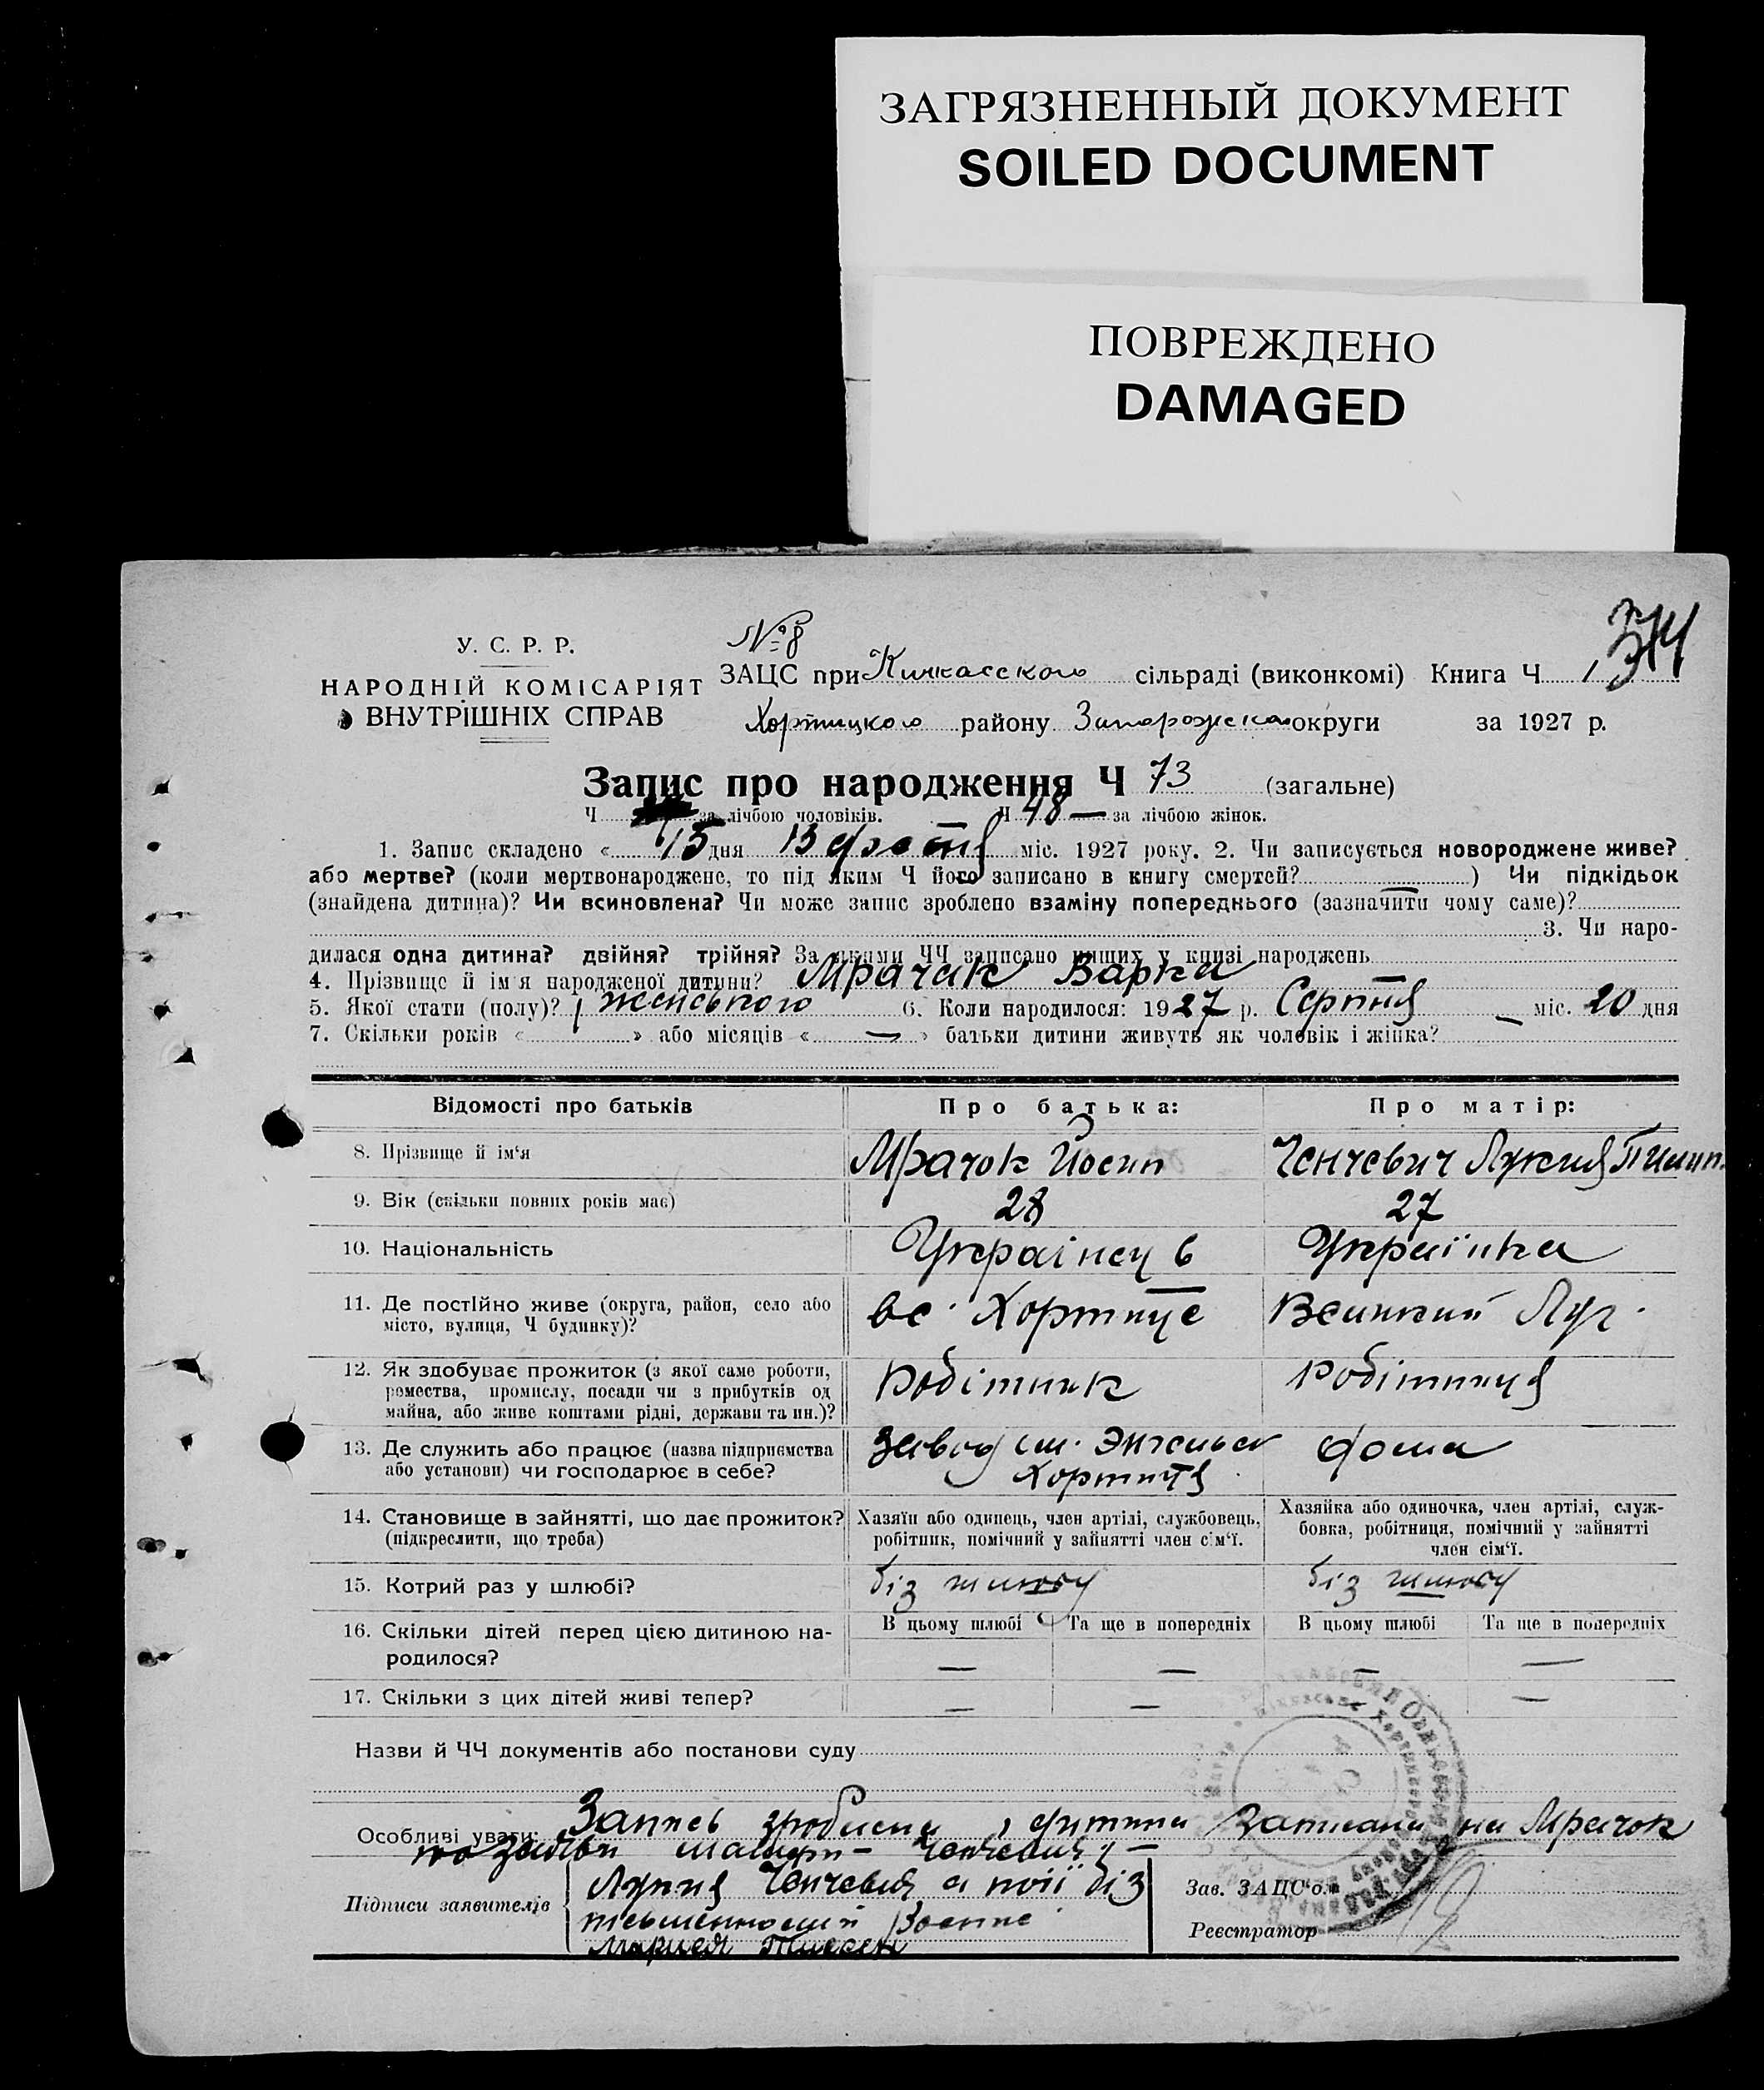 ЗАГРЯЗНЕННЫЙ ДОКУМЕНТ
SOILED DOCUMENT
ПОВРЕЖДЕНО
DAMAGED
У. С. Р. Р.
НАРОДНІЙ КОМІСАРІЯТ
ВНУТРІШНІХ СПРАВ
№ 8
ЗАЦС при Кичкасского сільраді (виконкомі) Книга Ч 1
Хортицкого району Запорожской округи за 1927 р.
Запис про народження Ч 73 (загальне)
Ч за лічбою чоловіків. Ч 48 — за лічбою жінок.
1. Запис складено « 15 дня міс. 1927 року. 2. Чи записується новороджене живе?
або мертве? (коли мертвонароджене, то під яким Ч його записано в книгу смертей? — ) Чи підкідьок
(знайдена дитина)? Чи всиновлена? Чи може запис зроблено взаміну попереднього (зазначити чому саме)?
3. Чи наро-
дилася одна дитина? двійня? трійня? За якими ЧЧ записано инших у книзі народжень
4. Прізвище й ім'я народженої дитини? Мрачак Варка
5. Якої стати (полу)? женського 6. Коли народилося: 1927 р. Серпня — міс. 20 дня
7. Скільки років « » або місяців « — » батьки дитини живуть як чоловік і жінка?
Відомості про батьків Про батька: Про матір:
8. Прізвище й ім'я Мрачок Йосип Ченчевич Лукия Пилип.
9. Вік (скільки повних років має) 28 27
10. Національність Українець Українка
11. Де постійно живе (округа, район, село або
місто, вулиця, Ч будинку)? вс. Хортице Великий Луг.
12. Як здобуває прожиток (з якої саме роботи,
ремества, промислу, посади чи з прибутків од
майна, або живе коштами рідні, держави та ин.)? Робітник Робітниця
13. Де служить або працює (назва підприємства
або установи) чи господарює в себе? Завод им. Энгельса Хортиця дома
14. Становище в зайнятті, що дає прожиток?
(підкреслити, що треба)
Хазяїн або одинець, член артілі, службовець,
робітник, помічний у зайнятті член сім'ї.
Хазяйка або одиночка, член артілі, служ-
бовка, робітниця, помічний у зайнятті
член сім'ї.
15. Котрий раз у шлюбі? біз шлюбу біз шлюбу
16. Скільки дітей перед цією дитиною на-
родилося?
В цьому шлюбі Та ще в попередніх В цьому шлюбі Та ще в попередніх
— — — —
17. Скільки з цих дітей живі тепер? — — — —
Назви й ЧЧ документів або постанови суду
Особливі уваги: Запись зроблена, дитина записана на Мрачок
по заяви матери — Ченчевич —
Підписи заявителів Лукия Ченчевич а по її біз
Зав. ЗАЦС'ом
Реєстратор